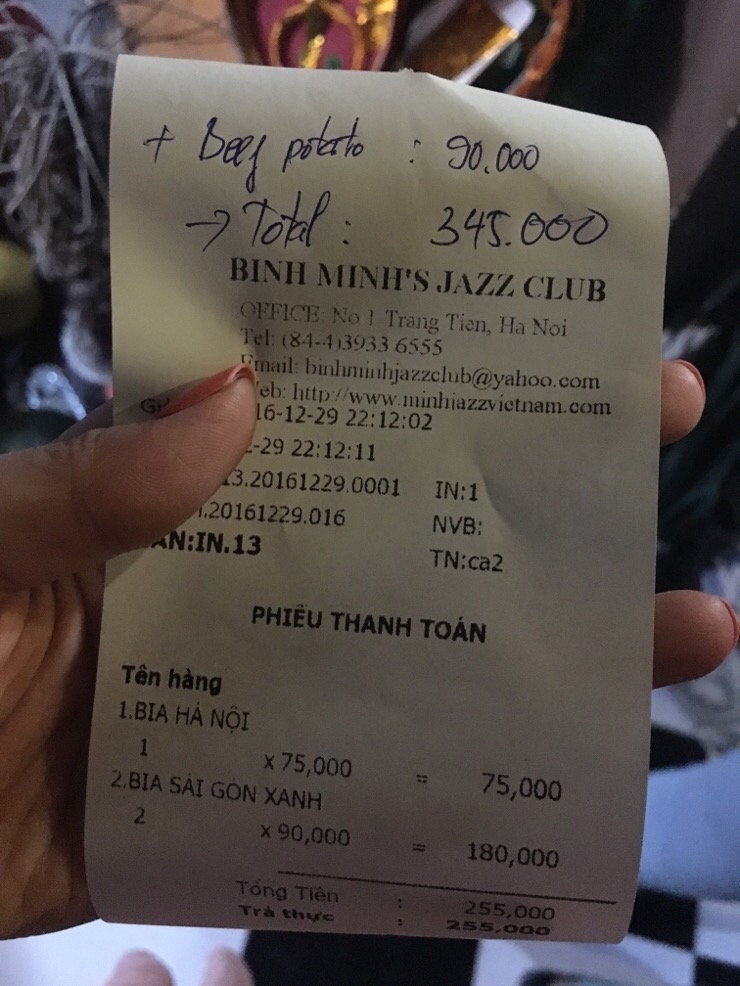 + Beef potato : 90.000
→ Total : 345.000
BINH MINH'S JAZZ CLUB
OFFICE: No 1 Trang Tien, Ha Noi
Tel: (84-4)3933 6555
Email: binhminhjazzclub@yahoo.com
Web: http://www.minhjazzvietnam.com
16-12-29 22:12:02
-29 22:12:11
13.20161229.0001 IN:1
.20161229.016 NVB:
AN:IN.13 TN:ca2
PHIẾU THANH TOÁN
Tên hàng
1.BIA HÀ NỘI
1 x 75,000 = 75,000
2.BIA SÀI GÒN XANH
2 x 90,000 = 180,000
Tổng Tiền : 255,000
Trả thực : 255,000